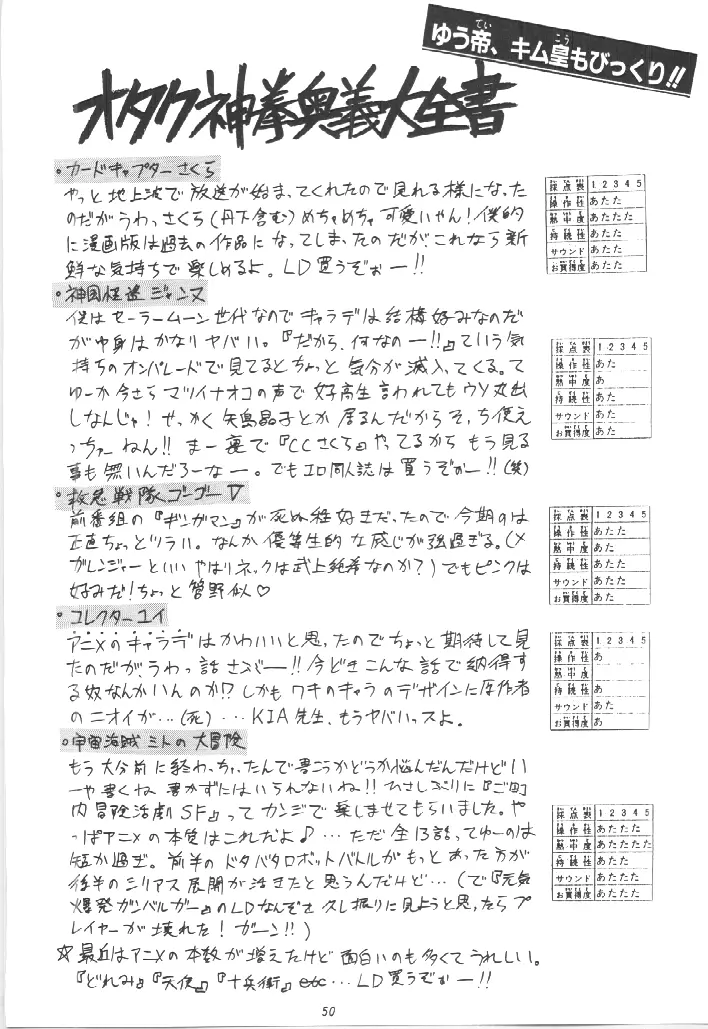 ゆう帝、キム皇もびっくり!!
オタク神拳奥義大全書
・カードキャプターさくら
やっと地上波で放送が始まってくれたので見れる様になった
のだがうわっさくら(丹下含む)めちゃめちゃ可愛いやん!僕的
に漫画版は過去の作品になってしまったのだが、これなら新
鮮な気持ちで楽しめるよ。LD買うぞぉー!!
採点表 1 2 3 4 5
操作性 あたた
熱中度 あたたた
持続性 あたた
サウンド あたた
お買得度 あたた
・神風怪盗ジャンヌ
僕はセーラームーン世代なのでキャラデは結構好みなのだ
が中身はかなりヤバい。『だから、何なのー!!』ていう気
持ちのオンパレードで見てるとちょっと気分が滅入ってくる。て
ゆーか今さらマツイナオコの声で女子高生言われてもウソ丸出
しなんじゃ!せっかく矢島晶子とか居るんだからそっち使え
っちゅーねん!!まー裏で『CCさくら』やってるからもう見る
事も無いんだろーなー。でもエロ同人誌は買うぞぉー!!(笑)
採点表 1 2 3 4 5
操作性 あた
熱中度 あ
持続性 あた
サウンド あた
お買得度 あた
・救急戦隊ゴーゴーV
前番組の『ギンガマン』が死ぬ程好きだったので今期のは
正直ちょっとツラい。なんか優等生的な感じが強過ぎる。(メ
ガレンジャーといいやはりネックは武上純希なのか?)でもピンクは
好みだ!ちょっと菅野似♡
採点表 1 2 3 4 5
操作性 あたた
熱中度 あた
持続性 あたた
サウンド あた
お買得度 あたた
・コレクターユイ
アニメのキャラデはかわいいと思ったのでちょっと期待して見
たのだが、うわっ話さぶー!!今どきこんな話で納得す
る奴なんかいんのか!?しかもワキのキャラのデザインに原作者
のニオイが…(死)…KIA先生、もうヤバいっスよ。
採点表 1 2 3 4 5
操作性 あ
熱中度
持続性 あ
サウンド あた
お買得度 あ
・宇宙海賊ミトの大冒険
もう大分前に終わっちゃったんで書こうかどうか悩んだんだけどい
ーや書くね 書かずにはいられないね!!ひさしぶりに『ご町
内冒険活劇SF』ってカンジで楽しませてもらいました。や
っぱアニメの本質はこれだよ♪…ただ全13話ってゆーのは
短か過ぎ。前半のドタバタロボットバトルがもっとあった方が
後半のシリアス展開が活きたと思うんだけど…(で『元気
爆発ガンバルガー』のLDなんぞさ久し振りに見ようと思ったらプ
レイヤーが壊れた!ガーン!!)
採点表 1 2 3 4 5
操作性 あたたた
熱中度 あたたたた
持続性 あたた
サウンド あたたた
お買得度 あたたた
☆最近はアニメの本数が増えたけど面白いのも多くてうれしい。
『どれみ』『天使』『十兵衛』etc…LD買うぞぉー!!
50